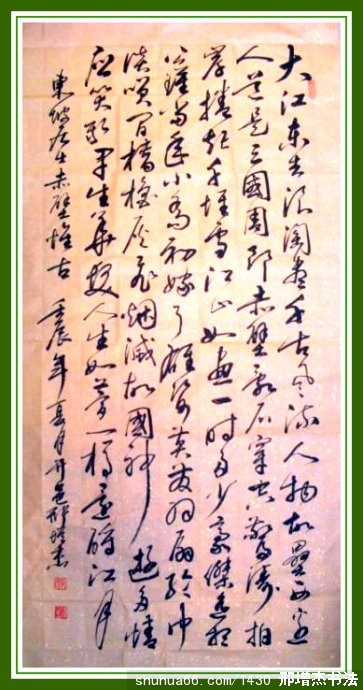 大江东去浪淘尽千古风流人物故垒西边
人道是三國周郎赤壁乱石穿空惊涛拍
岸捲起千堆雪江山如画一时多少豪傑遥想
公瑾当年小乔初嫁了雄姿英发羽扇纶巾
谈笑间樯橹灰飞烟灭故國神游多情
应笑我早生華发人生如梦一樽还酹江月
東坡居士赤壁懷古 壬辰年夏月 邢增杰
shuhua66.com/1430 邢增杰书法